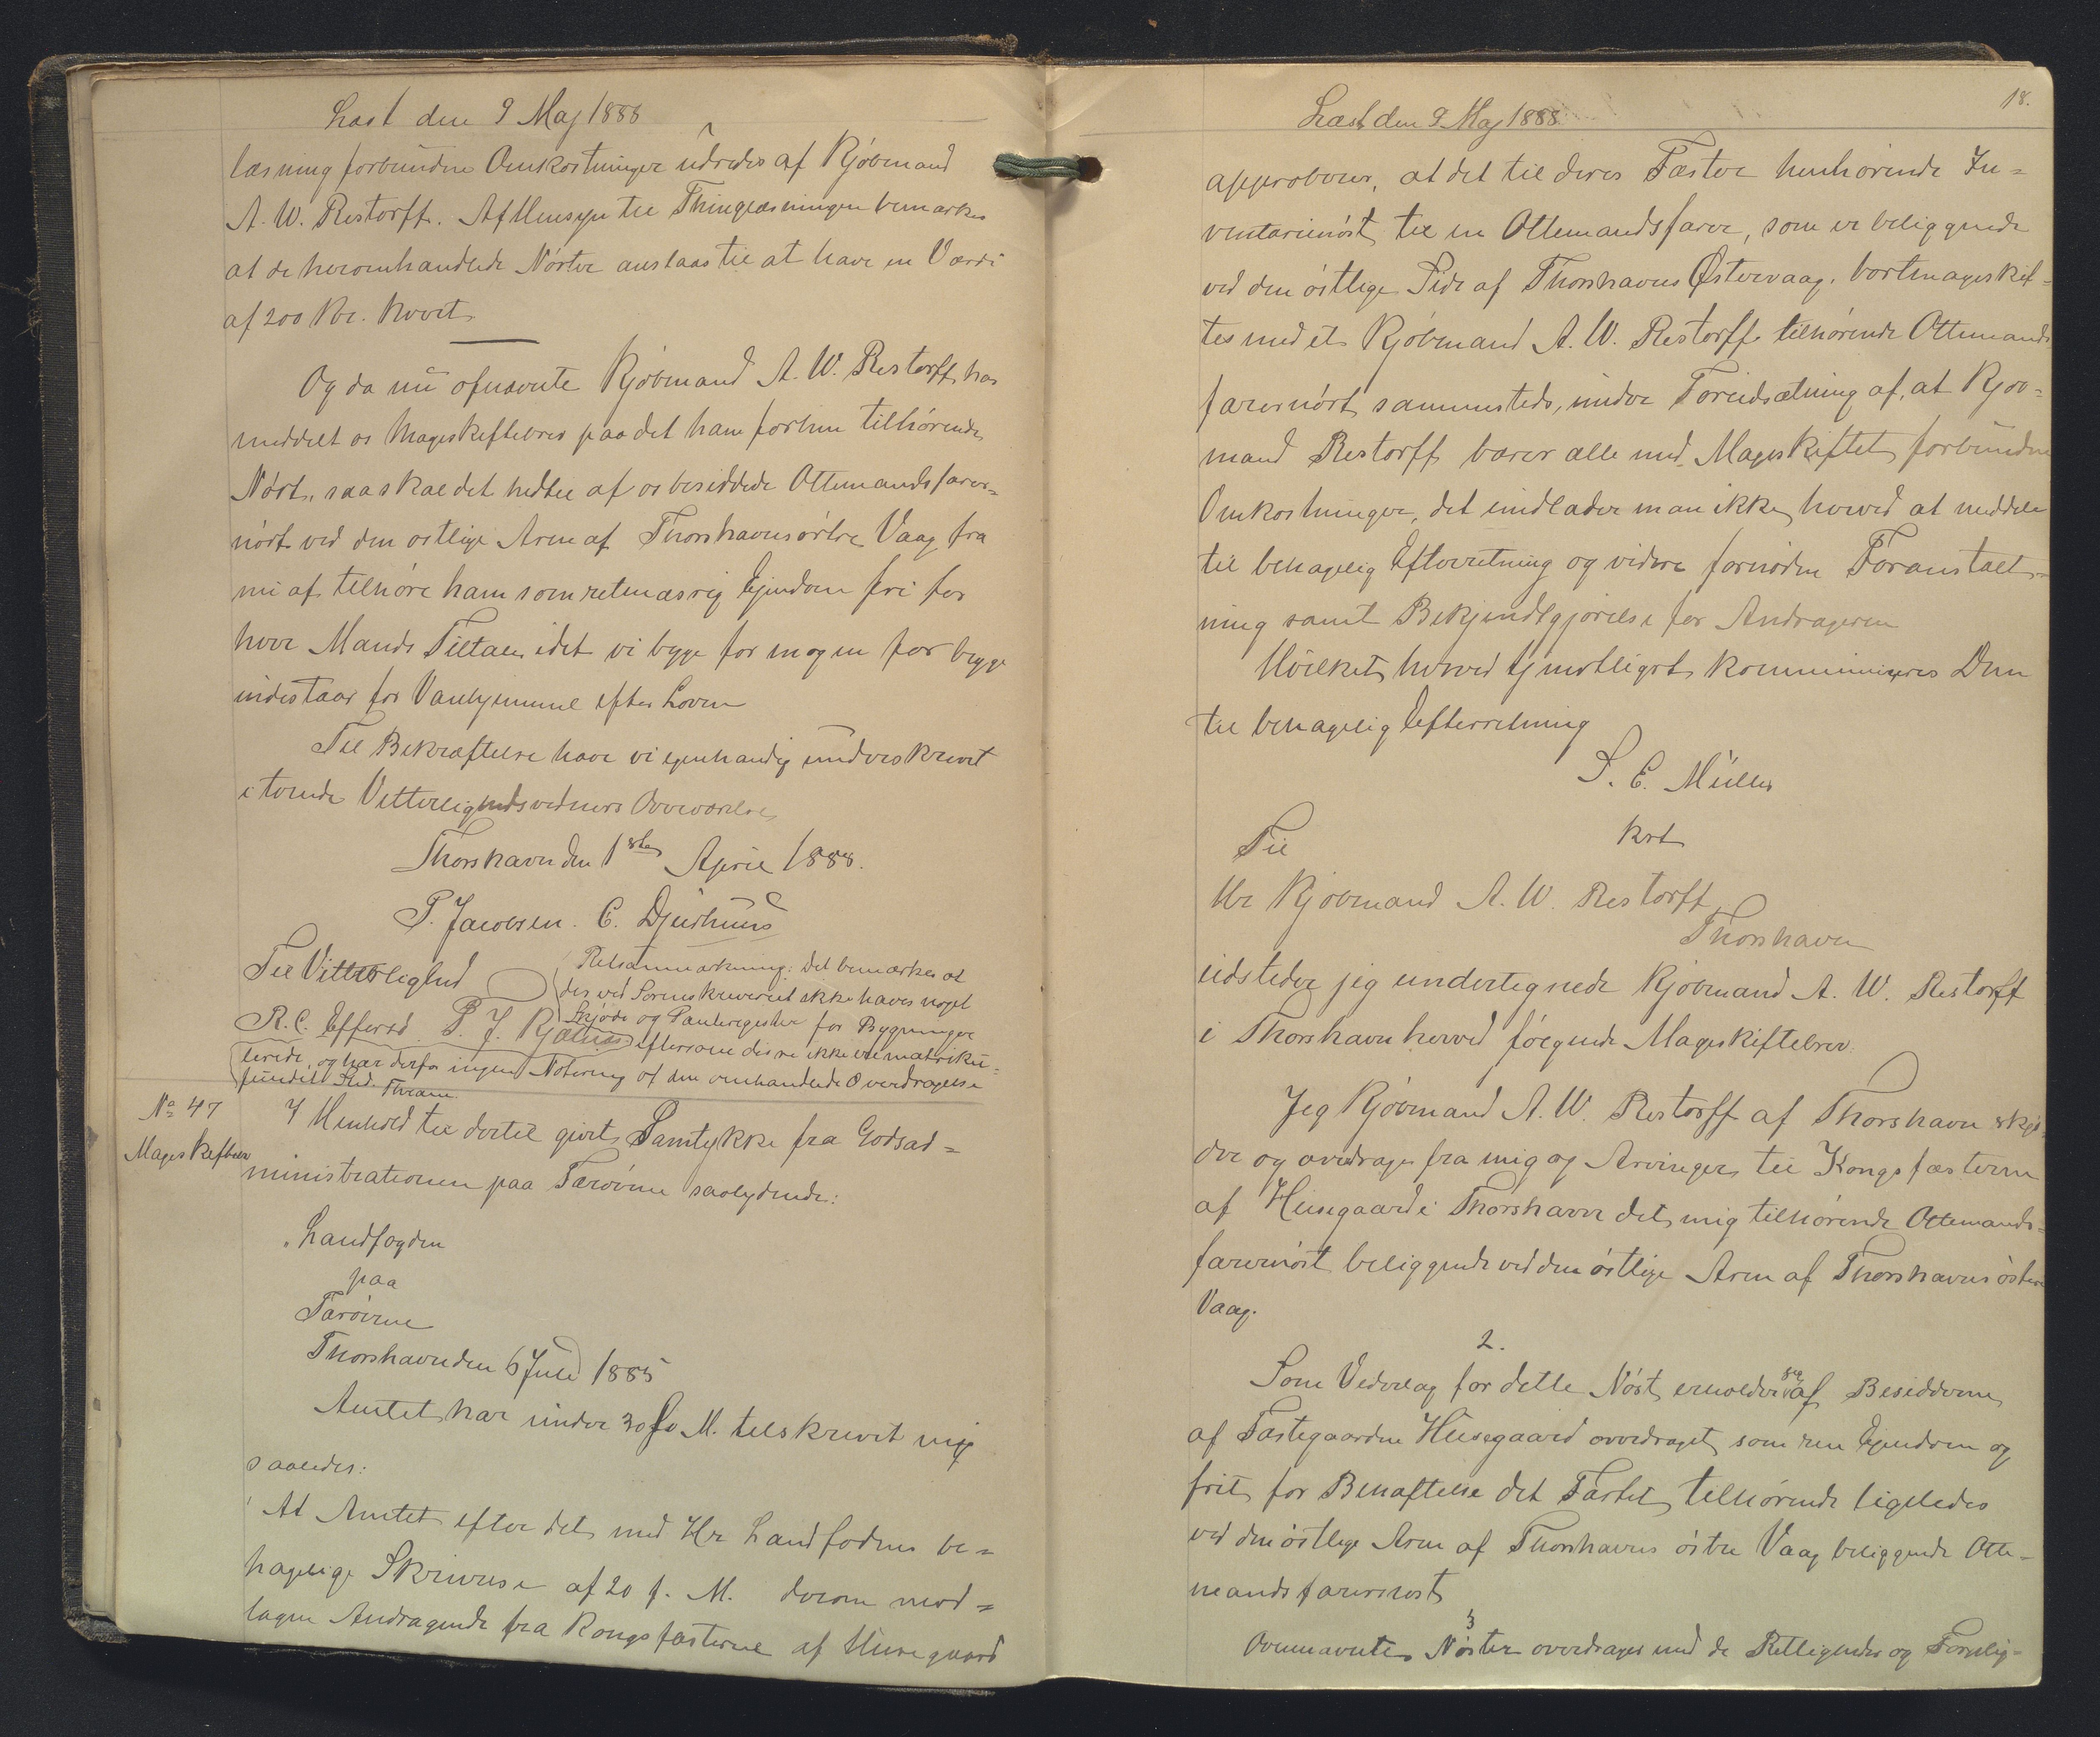 Læst den 9 Maj 1888
læsning forbundne Omkostninger udredes af Kjøbmand
A. W. Restorff. Af Hensyn til Thinglæsningen bemærkes
at de heromhandlede Nöster anslaas til at have en Værdi
af 200 Kr. hvert
Og da nu ofnævnte Kjøbmand A. W. Restorff har
meddelt os Mageskiftebrev paa det ham forhen tilhørende
Nöst, saa skal det hidtil af os besiddede Ottemandsfarer-
nöst ved den östlige Arm af Thorshavns östre Vaag fra
nu af tilhöre ham som retmæssig Ejendom fri for
hver Mands Tiltale idet vi begge for en og en for begge
indestaar for Vanhjemmel efter Loven
Til Bekræftelse have vi egenhændig underskrevet
i tvende Vitterlighedsvidners Overværelse
Thorshavn den 1ste April 1888.
P. Jacobsen. C. Djurhuus
Til Vitterlighed
Retsanmærkning: Det bemærkes at
der ved Sorenskriveriet ikke haves noget
Skjøde og Panteregister for Bygninger
R. C. Effersø P. J. Kjølnæs eftersom disse ikke ere matriku-
lerede, og har derfor ingen Notering af den omhandlede Overdragelse
fundet Sted. Thrane.
No 47
Mageskiftebrev
I Henhold til dertil givet Samtykke fra Godsad-
ministrationen paa Færöerne saalydende:
"Landfogden
paa
Færöerne
Thorshavn den 6 Juli 1885
Amtet har under 30 f. M. tilskrevet mig
saaledes:
"At Amtet efter det med Hr Landfodens be-
hagelige Skrivelse af 20 f. M. derom mod-
tagne Andragende fra Kongsfæsterne af Husegaard
18.
Læst den 9 Maj 1888
approberer, at det til deres Fæster henhörende In-
ventarienöst til en Ottemandsfarer, som er beliggende
ved den östlige Side af Thorshavns Østervaag, bortmageskif-
tes med et Kjöbmand A. W. Restorff tilhörende Ottemands
farernöst sammesteds, under Forudsætning af, at Kjöb-
mand Restorff bærer alle med Mageskiftet forbundne
Omkostninger, det undlader man ikke herved at meddele
til behagelig Efterretning og videre fornöden Foranstalt-
ning samt Bekjendtgjörelse for Andrageren
Hvilket herved tjenstligst kommuniceres Dem
til behagelig Efterretning
S. E. Müller
kst
Til
Hr Kjöbmand A. W. Restorff
Thorshavn
udsteder jeg undertegnede Kjöbmand A. W. Restorff
i Thorshavn herved fölgende Mageskiftebrev:
Jeg Kjöbmand A. W. Restorff af Thorshavn skjö-
der og overdrager fra mig og Arvinger til Kongsfæsterne
af Husegaard i Thorshavn det mig tilhörende Ottemands-
farernöst beliggende ved den östlige Arm af Thorshavns östre
Vaag.
2.
Som Vederlag for dette Nöst erholder jeg af Besidderne
af Fæstegaarden Husegaard overdraget som ren Ejendom og
frit for Behæftelse det Fæstet tilhörende ligeledes
ved den östlige Arm af Thorshavns östre Vaag beliggende Otte-
mandsfarernöst
3
Ovennævnte Nöster overdrages med de Rettigheder og Forplig-